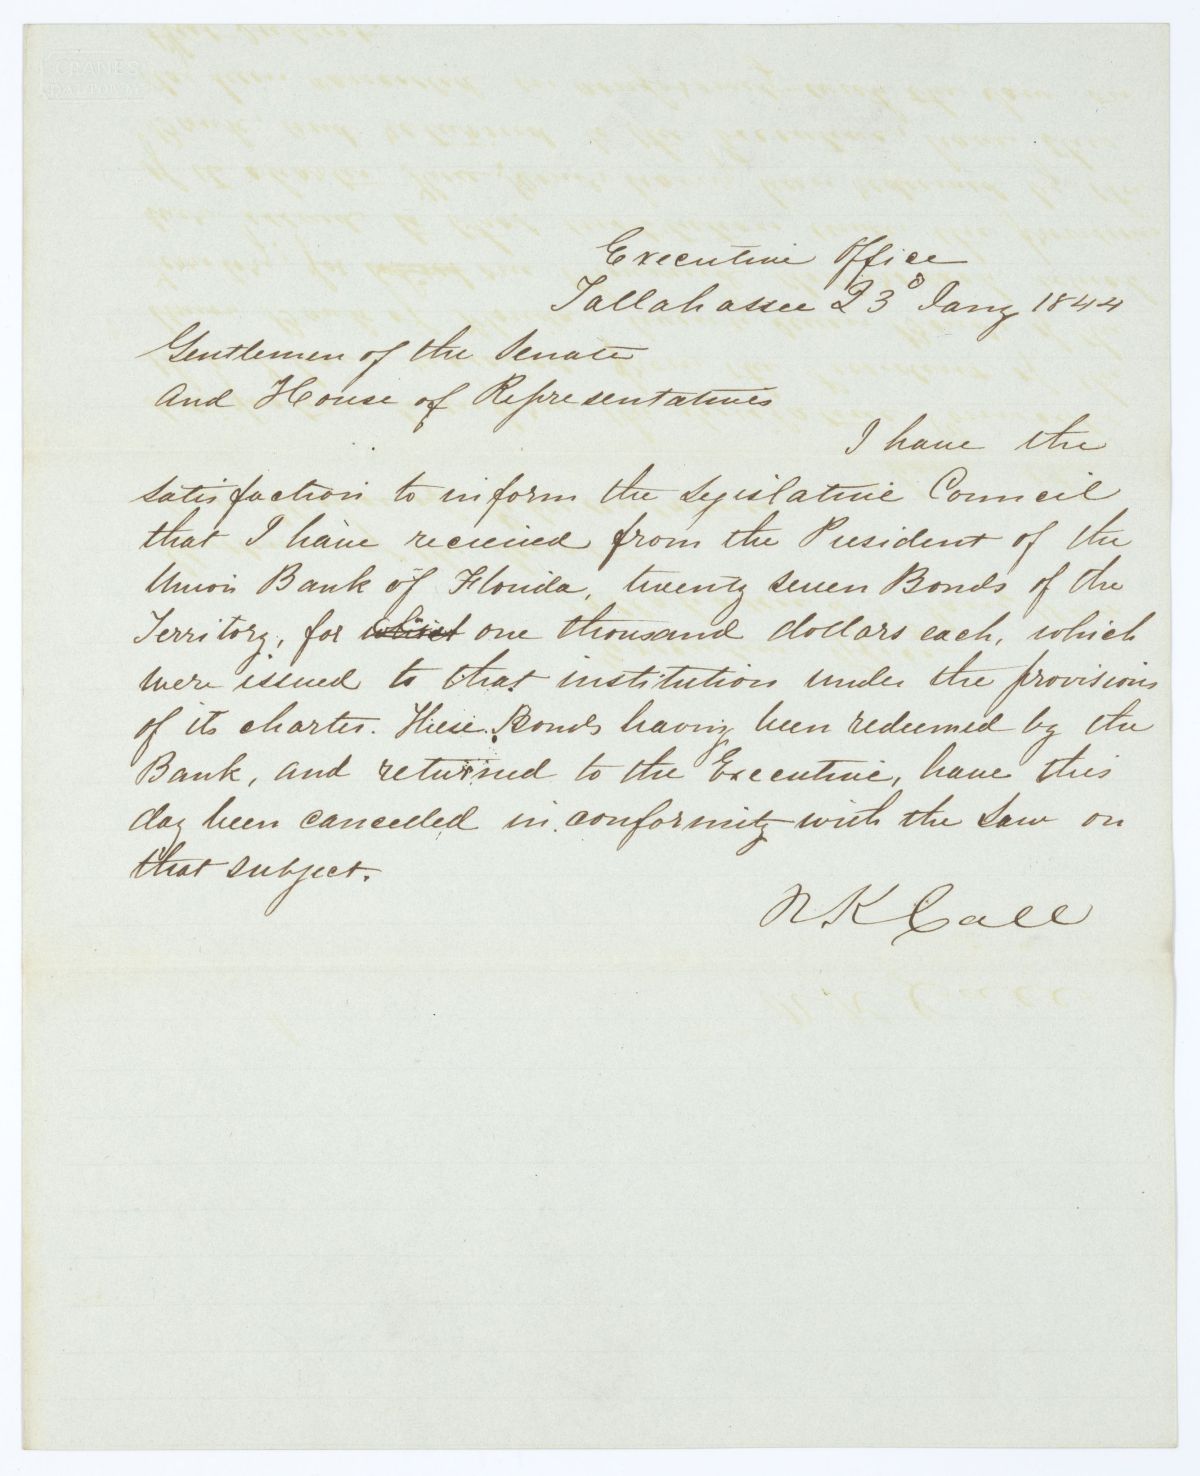 CRANE'S
DALTON
Executive Office
Tallahassee 23d Jany 1844
Gentlemen of the Senate
and House of Representatives
I have the
satisfaction to inform the Legislative Council
that I have received from the President of the
Union Bank of Florida, twenty seven Bonds of the
Territory, for one thousand dollars each, which
were issued to that institution under the provisions
of its charter. These Bonds having been redeemed by the
Bank, and returned to the Executive, have this
day been cancelled in conformity with the Law on
that subject.
R K Call